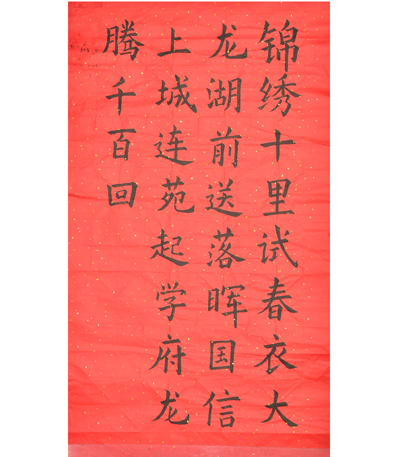 锦绣十里试春衣大
龙湖前送落晖国信
上城连苑起学府龙
腾千百回